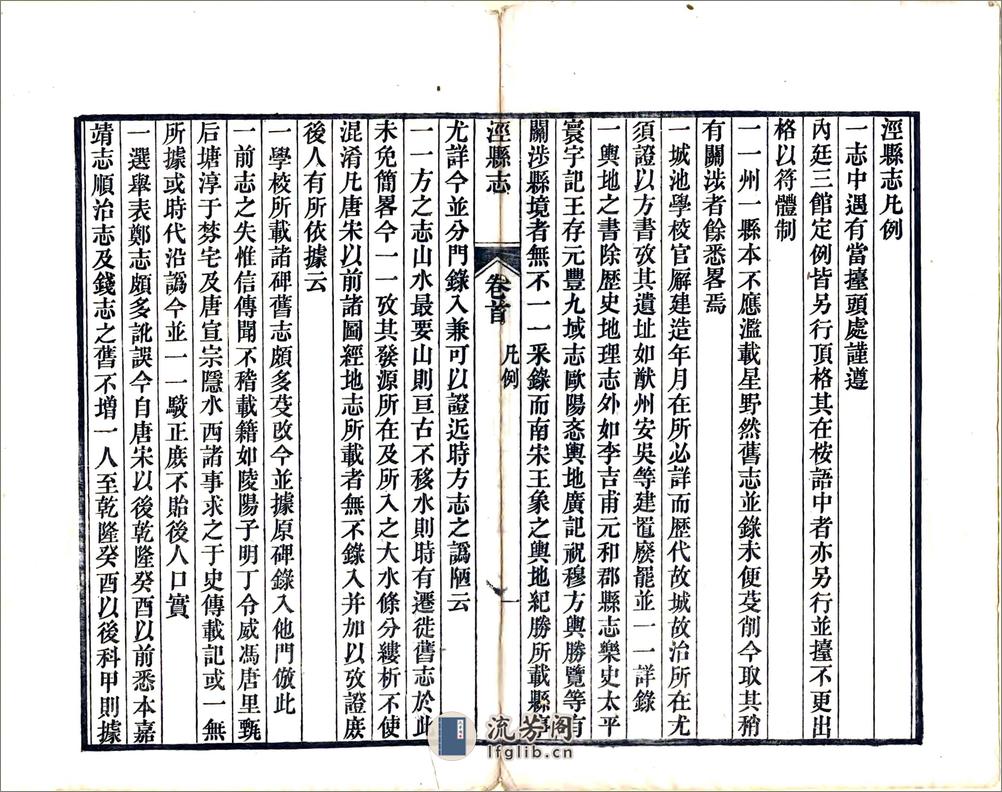 涇縣志凡例
一志中遇有當擡頭處謹遵
內廷三館定例皆另行頂格其在桉語中者亦另行並擡不更出
格以符體制
一一州一縣本不應濫載星野然舊志並錄未便芟削今取其稍
有關涉者餘悉畧焉
一城池學校官廨建造年月在所必詳而歷代故城故治所在尤
須證以方書攷其遺址如猷州安吳等建置廢罷並一一詳錄
一輿地之書除歷史地理志外如李吉甫元和郡縣志樂史太平
寰宇記王存元豐九域志歐陽忞輿地廣記祝穆方輿勝覽等有
關涉縣境者無不一一釆錄而南宋王象之輿地紀勝所載縣事
涇縣志
卷首
凡例
一
尤詳今並分門錄入兼可以證近時方志之譌陋云
一一方之志山水最要山則亘古不移水則時有遷徙舊志於此
未免簡畧今一一攷其發源所在及所入之大水條分縷析不使
混淆凡唐宋以前諸圖經地志所載者無不錄入并加以攷證庶
後人有所依據云
一學校所載諸碑舊志頗多芟改今並據原碑錄入他門倣此
一前志之失惟信傳聞不稽載籍如陵陽子明丁令威馮唐里甄
后塘淳于棼宅及唐宣宗隱水西諸事求之于史傳載記或一無
所據或時代沿譌今並一一駮正庶不貽後人口實
一選舉表鄭志頗多訛誤今自唐宋以後乾隆癸酉以前悉本嘉
靖志順治志及錢志之舊不增一人至乾隆癸酉以後科甲則據
流芳阁
lfglib.cn